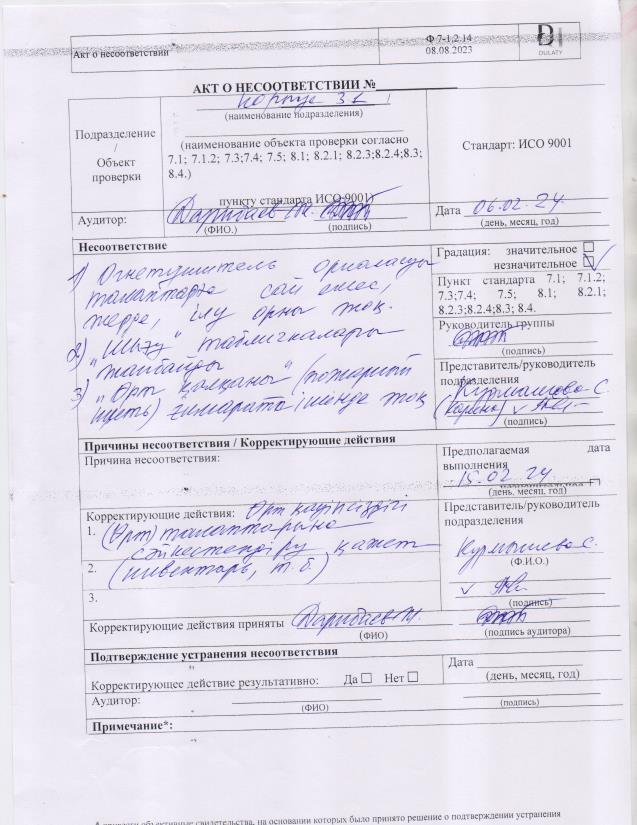 Акт о несоответствии
Ф 7-1.2.14
08.08.2023
D
DULATY
АКТ О НЕСООТВЕТСТВИИ №
корпус 3
(наименование подразделения)
Подразделение
/
Объект
проверки
(наименование объекта проверки согласно
7.1; 7.1.2; 7.3;7.4; 7.5; 8.1; 8.2.1; 8.2.3;8.2.4;8.3;
8.4.)
пункту стандарта ИСО 9001)
Стандарт: ИСО 9001
Аудитор:
(ФИО.) (подпись)
Дата 06.02.24.
(день, месяц, год)
Несоответствие
1) Огнетушитель орналасуы
талаптарға сай емес,
жерде, ілу орны жоқ.
2) "Шығу" табличкалары
жанбайды
3) "Өрт қалқаны" (пожарный
щить) ғимарат ішінде жоқ
Градация: значительное ☐
незначительное ☑
Пункт стандарта 7.1; 7.1.2;
7.3;7.4; 7.5; 8.1; 8.2.1;
8.2.3;8.2.4;8.3; 8.4.
Руководитель группы
(подпись)
Представитель/руководитель
подразделения
Курмашева С.
(подпись)
Причины несоответствия / Корректирующие действия
Причина несоответствия:
Предполагаемая дата
выполнения
15.02.24.
(день, месяц, год)
Корректирующие действия: Өрт қауіпсіздігі
1. (Өрт) талаптарына
сәйкестендіру қажет
2. (инвентарь, т.б.)
3.
Представитель/руководитель
подразделения
Курмашева С.
(Ф.И.О.)
(подпись)
Корректирующие действия приняты
(ФИО)
(подпись аудитора)
Подтверждение устранения несоответствия
Корректирующее действие результативно: Да ☐ Нет ☐
Дата
(день, месяц, год)
Аудитор:
(ФИО)
(подпись)
Примечание*:
объективные свидетельства, на основании которых было принято решение о подтверждении устранения